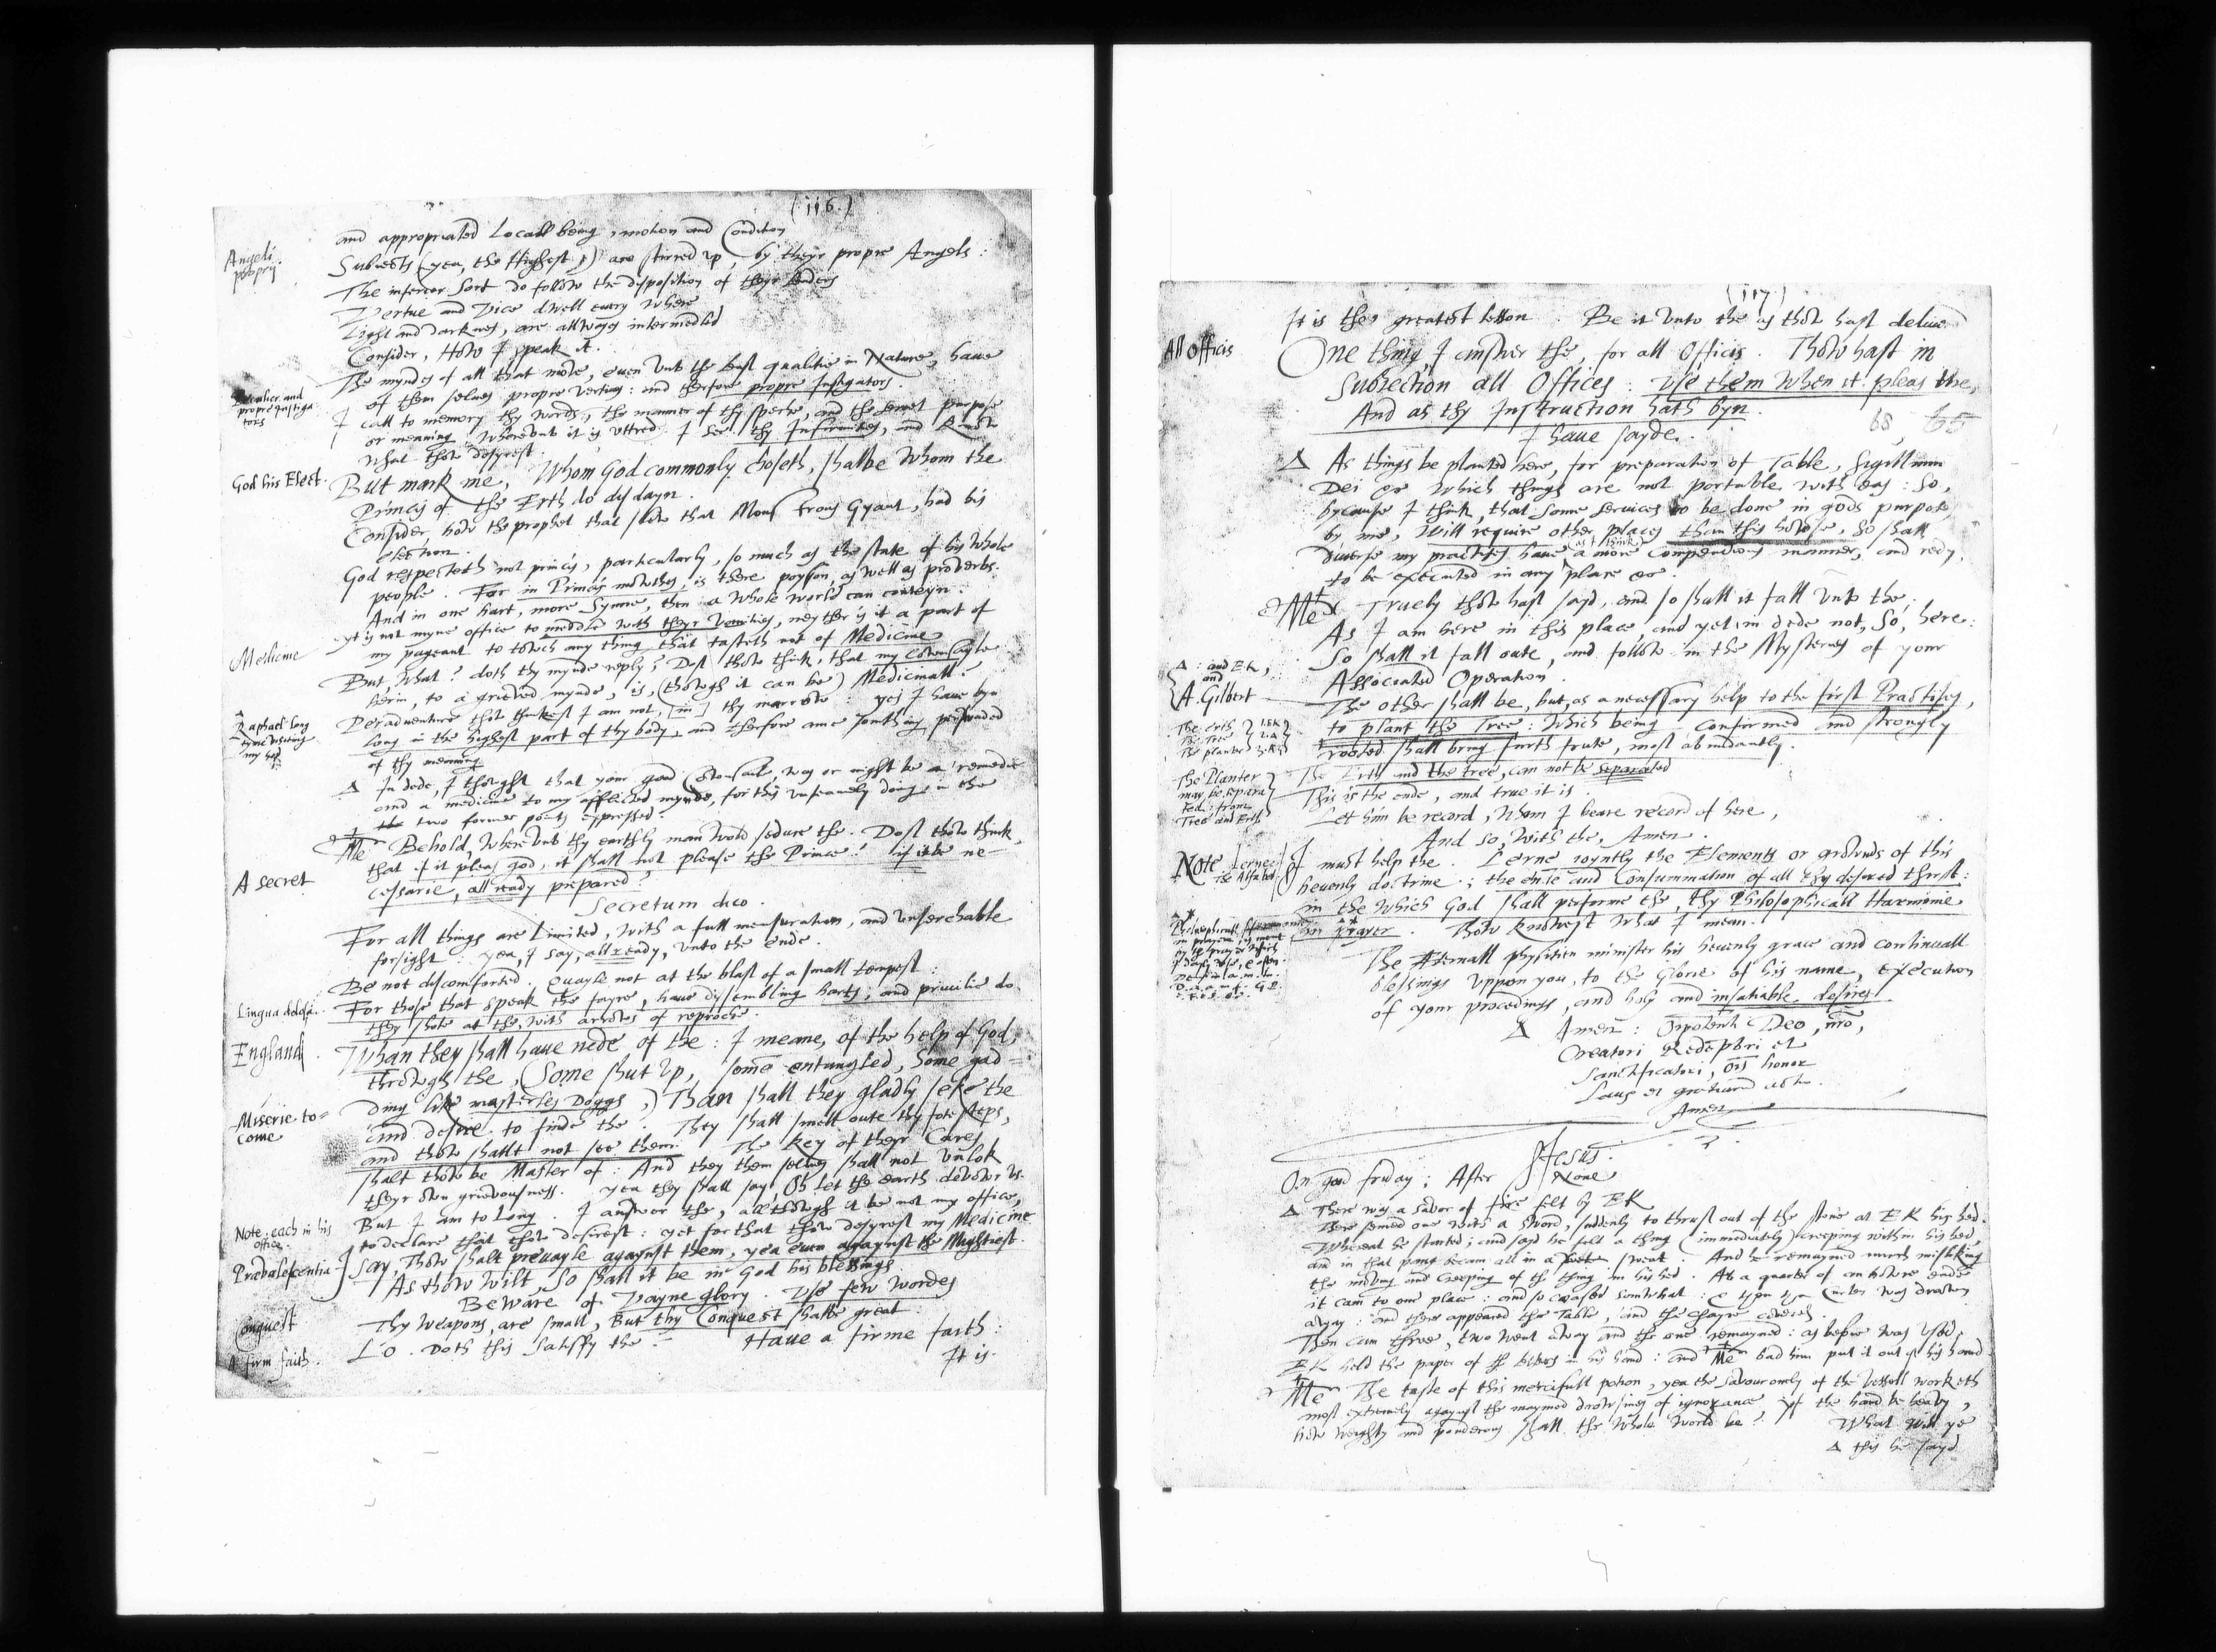 (116.)
and appropriated Locall being, motion and Condition
Angeli proprij.
Subiects (yea, the Highest) are stirred vp, by theyr propre Angels:
The inferior sort do follow the disposition of theyr leaders
Vertue and Vice dwell euery where
Light and darknes, are allways intermedled
Consider, How I speak it.
The myndes of all that move, euen vnto the least qualitie in Nature, haue
of them selues propre vertues: and therfore propre Instigators.
propre Instiga
tors
I call to memory thy words, the manner of thy speche, and the secret purpose
or meaning, wherevnto it is vttred. I see thy Infirmities, and know
what thow desyrest.
God his Elect.
But mark me, Whom God commonly choseth, shalbe whom the
Princis of the Erth do disdayn.
Consider, how the prophet that slew that Monstrous Gyant, had his
election.
God respecteth not princis, particularly, so much as the state of his whole
people. For in Princis mowthes, is there poyson, as well as proverbs.
And in one hart, more Synne, then a whole world can conteyn.
yt is not myne office to meddle with theyr vanities, neyther is it a part of
my pageant to towch any thing that tasteth not of Medicine
Medicine
But, what? doth thy mynde reply? Dost thow think, that my cownsayle
herin, to a grieved mynde, is, (though it can be) Medicinall?
Peradventure thow thinkest I am not, [in] thy marrow: yes I have byn
Raphael long
tyme visiting
my hed
long in the highest part of thy body, and therfore ame somthing perswaded
of thy meaning
Δ In dede, I thowght that your good Cownsaile, was or might be a remedie
and a medicine to my afflicted mynde, for this vnseamely doing, in the
the two former points expressed.
Me Behold, wherevnto thy earthly man wold seduce the. Dost thow think,
that if it pleas god, it shall not please the Prince? if it be ne-
A secret
cessarie, all ready prepared?
Secretum dico.
For all things are Limited, with a full measuration, and vnserchable
forsight: yea, I say, all ready, vnto the ende.
Be not discomforted. Quayle not at the blast of a small tempest:
For those that speak the fayre, have dissembling harts, and priuilie do
Lingua dolosa.
they shote at the, with arrows of reproche.
England.
Whan they shall haue nede of the: I meane, of the help of God,
through the, (Some shut vp, some entangled, some gad-
ding like masterles Doggs,) Than shall they gladly seke the
Miserie to-
come
and desire to finde the. They shall smell oute thy fotesteps,
and thow shallt not see them. The key of theyr Cares
shalt thow be Master of: And they them selues shall not vnlok
theyr own grievousness. yea they shall say, Oh let the earth devowr vs.
But I am to Long. I answer the, allthowgh it be not my office,
Note each in his
office.
to declare that thow desirest: yet for that thow desyrest my Medicine
Praevalescentia
I say, Thow shalt prevayle against them, yea euen against the Mightiest.
As thow wilt, so shall it be in God his blessings.
Beware of Vayne glory. Vse few wordes
Conquest
Thy weapons, are small, But thy Conquest shalbe great:
A firm faith.
Lo. Doth this satisfy the? Haue a firme faith:
It is
(117)
It is the greatest lesson. Be it vnto the as thow hast deliuered
All Officis
One thing, I answer the, for all Officis. Thow hast in
Subiection all Offices: Vse them when it pleas the,
And as thy Instruction hath byn.
I haue sayde.
65
Δ As things be planted here, for preparation of Table, Sigillum
Dei &c Which things are not portable with eas: So,
bycause I think, that some services to be done in gods purpose
by me, will require other places than this howse, So shall
diverse my practises haue (as I think) a more compendious manner, and redy,
to be executed in any place &c.
Me Truely thow hast sayd, and so shall it fall vnto the:
As I am here in this place, and yet in dede not, So, here:
So shall it fall oute, and follow in the Mysteries of your
Associated Operation.
Δ: and EK,
and
A. Gilbert
The other shall be, but, as a necessary help to the first Practises,
to plant the Tree: Which being Confirmed and strongly
rooted shall bring furth frute, most abundantly.
The Erth
The Tree
The planter
The Erth and the tree, can not be separated
The Planter
may be separa
ted: from
Tree and Erth
This is the ende, and true it is.
Let him be record, whom I beare record of here,
And so, with the, Amen.
Note
I must help the. Lerne ioyntly the Elements or grownds of this
hevenly doctrine: the ende and Consummation of all thy desired thirst:
in the which God shall performe the, thy Philosophicall Harmonie
in Prayer. Thow knowest what I mean.
The Æternall physitien minister his hevenly grace and continuall
blessings vppon you, to the Glorie of his name, execution
of your procedings, and holy and insatiable desires
Δ Amen: Omnipotenti Deo, nro,
Creatori Redēptori et
Sanctificatori, ōis honor
Laus et gratiarū actio.
Amen
Jesus.
On good friday; After None
Δ There was a savor of fire felt by EK
There semed one with a sword, suddenly to thrust out of the stone at EK his hed.
Whereat he started; and sayd he felt a thing (immediately) creeping within his hed,
and in that pang becam all in a sweat. And he remayned much misliking
the moving and creeping of the thing in his hed. At a quarter of an howre ende
it cam to one place: and so ceased somwhat: & then the Curten was drawen
away: and there appeared the Table, and the chayre covered.
Then cam three, two went away and the one remayned: as before was vsed,
EK held the paper of the letters in his hand: and Me bad him put it out of his hand
Me The taste of this mercifull potion, yea the savour onely of the vessell worketh
most extremely agaynst the maymed drowsines of ignorance. yf the hand be heavy,
how weighty and ponderous shall the whole world be? What will ye
Δ this he sayd